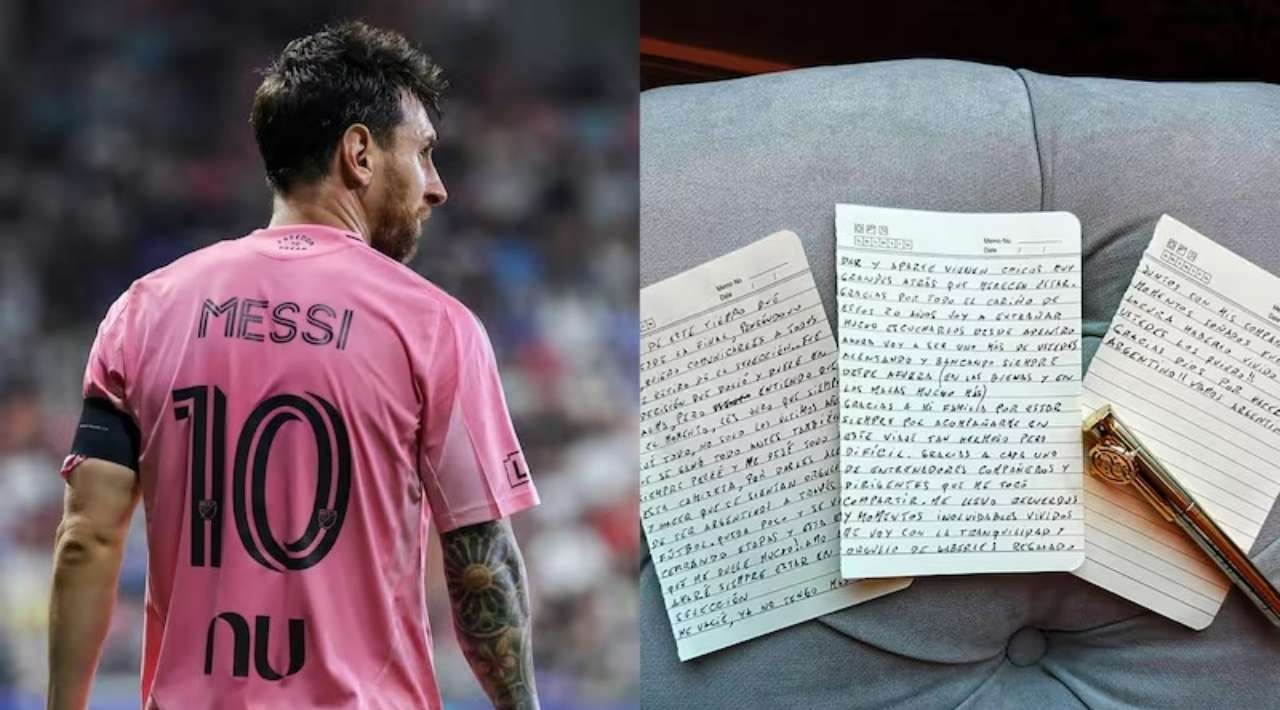 FREEDOM
TO
DREAM
MESSI
10
nu
L
Memo No.
Date / /
DE ESTE TIEMPO QUE
DESDE LA FINAL,
QUIERO COMUNICARLES A TODOS
RETIRO DE LA SELECCIÓN. FUE
DECISIÓN QUE DOLIÓ Y DUELE EN
ALMA, PERO ENTIENDO QUE
EL MOMENTO. LES JURO QUE SIEMPRE
DÍ TODO, NO SOLO LOS ÚLTIMOS
SE GANÓ TODO ANTES TAMBIÉN
SIEMPRE PELEÉ Y ME DEJÉ TODO
ESTA CAMISETA, POR DARLES
Y HACER QUE SE SIENTAN
DE SER ARGENTINOS A TRAVÉS
FÚTBOL. QUEDA POCO Y SE
CERRANDO ETAPAS Y ESTA
QUE ME DUELE MUCHO. AMO
AMARÉ SIEMPRE ESTAR EN
SELECCIÓN
ME VACIÉ, YA NO TENGO
Memo No.
Date / /
DAR Y APARTE VIENEN CHICOS MUY
GRANDES ATRÁS QUE MERECEN ESTAR.
GRACIAS POR TODO EL CARIÑO DE
ESTOS 20 AÑOS VOY A EXTRAÑAR
MUCHO ESCUCHARLOS DESDE ADENTRO
AHORA VOY A SER UNO MÁS DE USTEDES
ALENTANDO Y BANCANDO SIEMPRE
DESDE AFUERA (EN LAS BUENAS Y EN
LAS MALAS MUCHO MÁS)
GRACIAS A MI FAMILIA POR ESTAR
SIEMPRE POR ACOMPAÑARME EN
ESTE VIAJE TAN HERMOSO PERO
DIFÍCIL. GRACIAS A CADA UNO
DE ENTRENADORES COMPAÑEROS Y
DIRIGENTES QUE ME TOCÓ
COMPARTIR. ME LLEVO RECUERDOS
Y MOMENTOS INOLVIDABLES VIVIDOS
ME VOY CON LA TRANQUILIDAD Y
ORGULLO DE HABERLES REGALADO
JUNTOS CON MIS
MOMENTOS SOÑADOS FUE
LOCURA HABERLO VIVIDO
USTEDES. LOS QUIERO!!
GRACIAS DIOS POR
ARGENTINO!! VAMOS